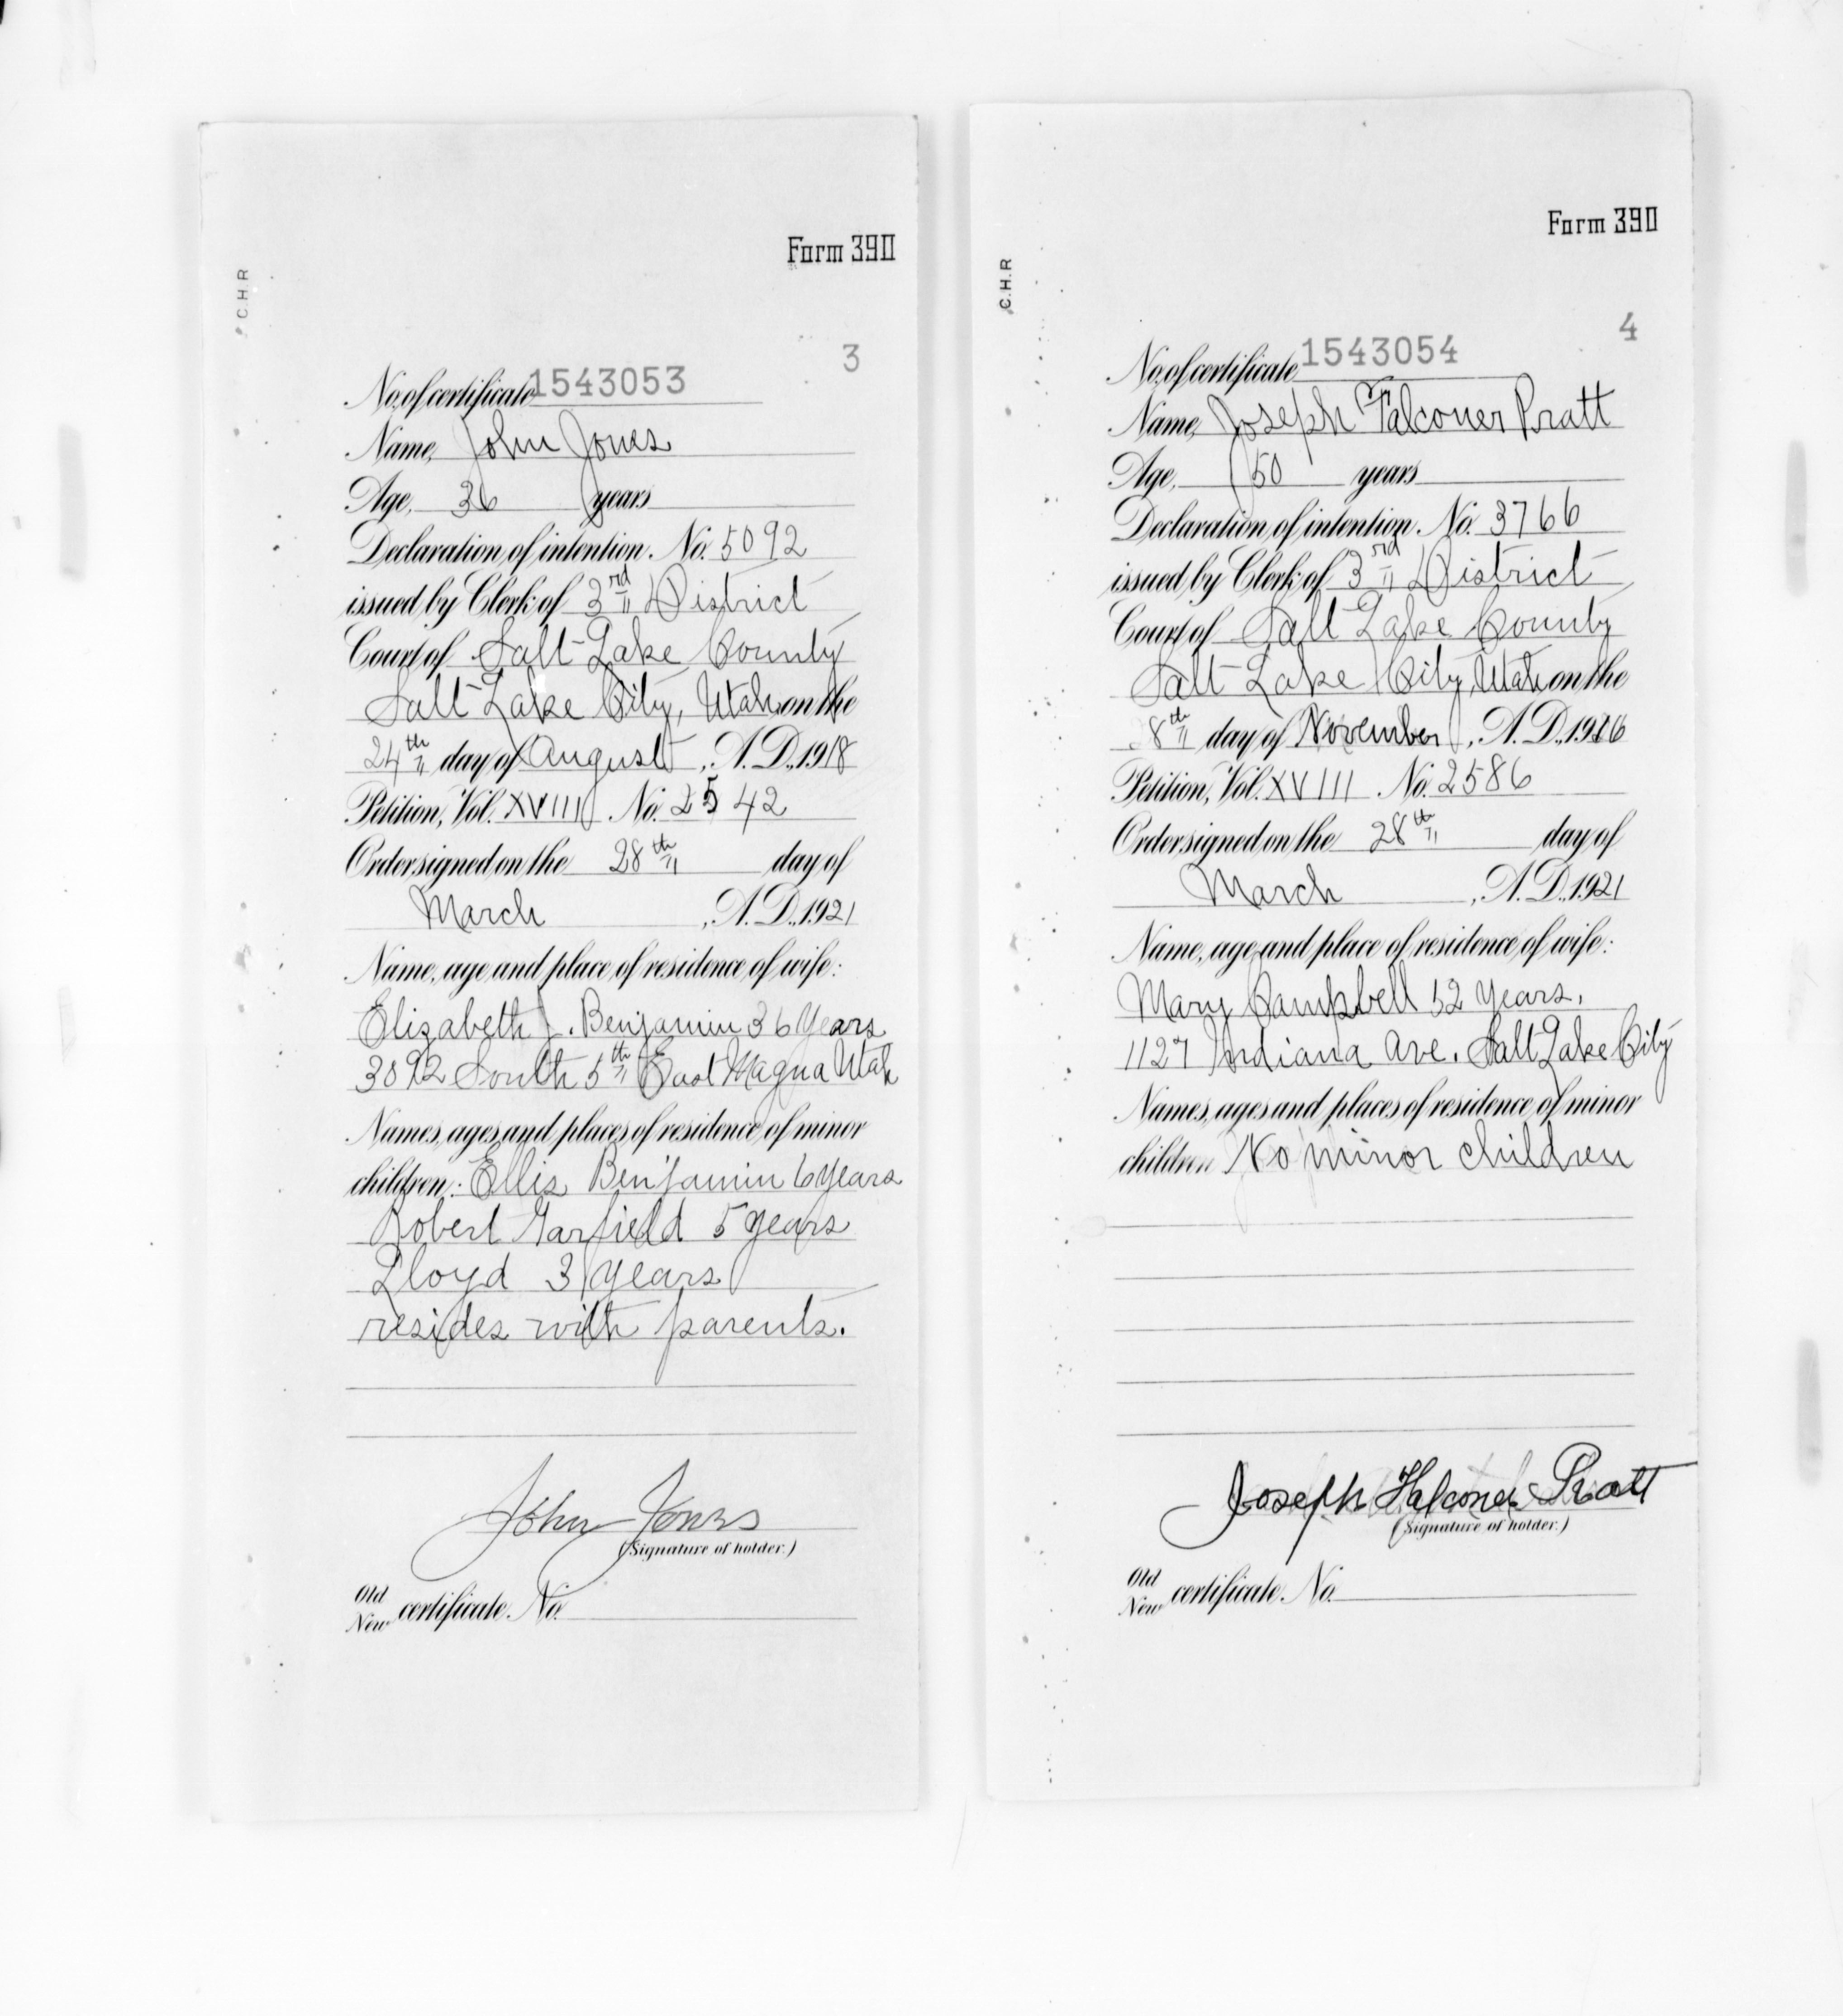 Form 390
C.H.R
3
No. of certificate 1543053
Name, John Jones
Age, 36 years
Declaration of intention No. 5092
issued by Clerk of 3rd District
Court of Salt Lake County
Salt Lake City, Utah on the
24th day of August, A.D., 1918
Petition, Vol. XVIII No. 2542
Order signed on the 28th day of
March, A.D., 1921
Name, age and place of residence of wife:
Elizabeth J. Benjamin 36 Years
3092 South 5th East Magna Utah
Names, ages and places of residence of minor
children: Ellis Benjamin 6 years
Robert Garfield 5 years
Lloyd 3 years
resides with parents.
John Jones
(Signature of holder.)
Old
New certificate No.
Form 390
C.H.R
4
No. of certificate 1543054
Name, Joseph Falconer Pratt
Age, 50 years
Declaration of intention No. 3766
issued by Clerk of 3rd District
Court of Salt Lake County
Salt Lake City, Utah on the
day of November, A.D., 1916
Petition, Vol. XVIII No. 2586
Order signed on the 28th day of
March, A.D., 1921
Name, age and place of residence of wife:
Mary Campbell 52 years,
1127 Indiana Ave. Salt Lake City
Names, ages and places of residence of minor
children No minor children
Joseph Falconer Pratt
(Signature of holder.)
Old
New certificate No.